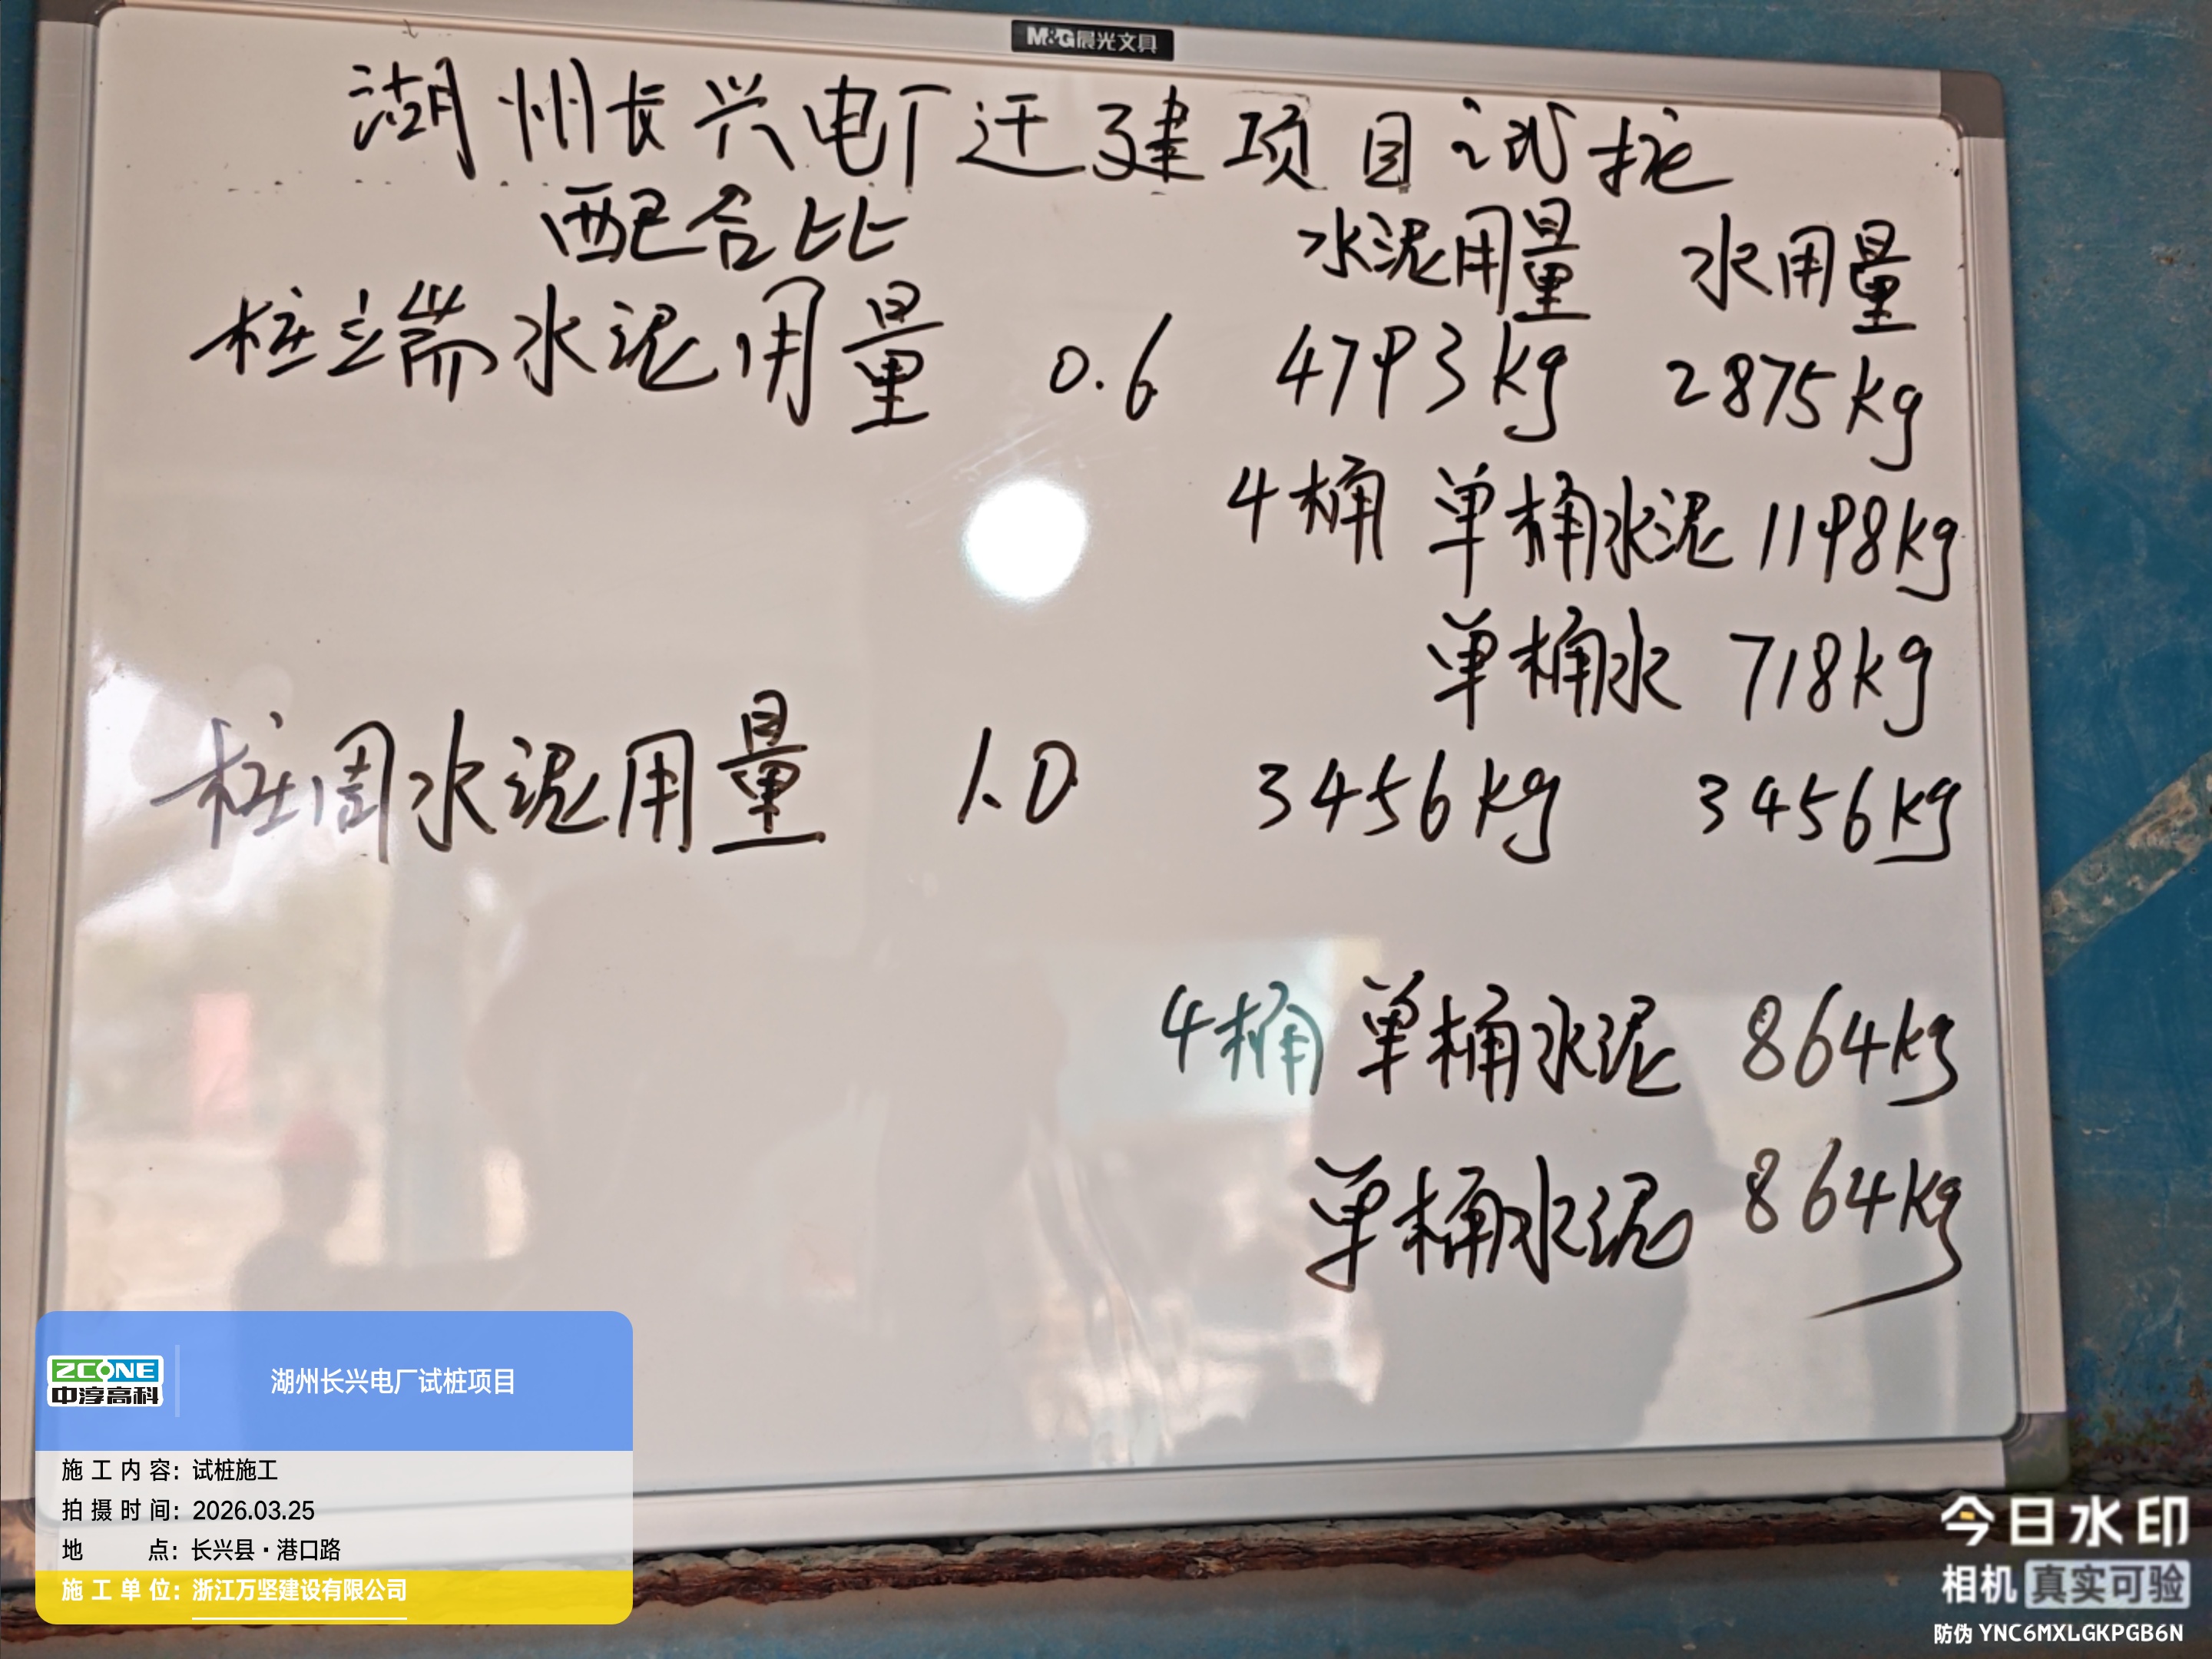 M&G晨光文具
湖州长兴电厂迁建项目试桩
配合比
水泥用量 水用量
桩端水泥用量 0.6 4793kg 2875kg
4桶 单桶水泥 1198kg
单桶水 718kg
桩周水泥用量 1.0 3456kg 3456kg
4桶 单桶水泥 864kg
单桶水泥 864kg
ZCONE
中淳高科
湖州长兴电厂试桩项目
施工内容：试桩施工
拍摄时间：2026.03.25
地点：长兴县·港口路
施工单位：浙江万坚建设有限公司
今日水印
相机 真实可验
防伪 YNC6MXLGKPGB6N